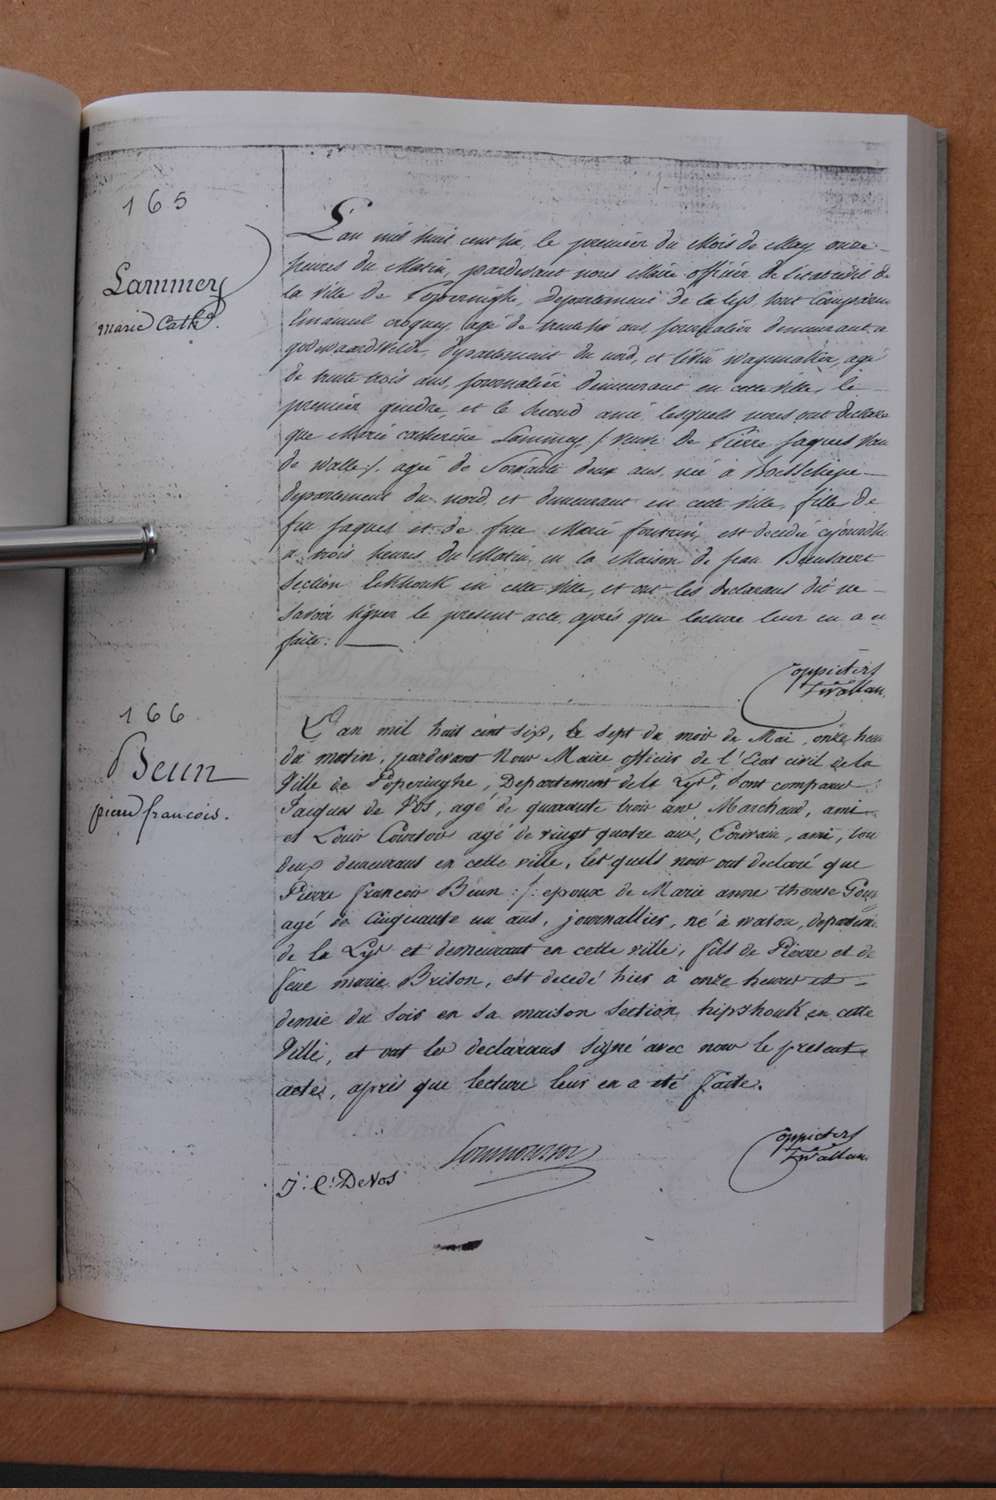 165
Lammey
marie Cathe.
L'an mil huit cent six, le premier du Mois de May onze
heures du Matin, pardevant nous Maire officier de l'état civil de
la ville de Poperinghe, Departement de la Lys, sont Comparus
Emanuel croquey, agé de trente six ans, journalier demeurant a
godewaersvelde, departement du nord, et wagemaker, agé
de trente trois ans, journalier demeurant en cette ville, le
premier gendre et le second ami lesquels nous ont declaré
que Marie catherine Lammey / veuve de Pierre Jaques Van
de walle /. agée de Soixante deux ans, née à Boeschepe
departement du nord et demeurant en cette ville, fille de
feu Jaques et de feue Marie est decedée cejourdhui
a trois heures du Matin en la Maison de Jean
Section en cette ville, et ont les declarans dit ne
savoir signer le present acte, après que lecture leur en a eté
faite.
Coppieters
twallan.
166
Beun
pierre francois.
L'an mil huit cent six, le sept du mois de Mai, onze heures
du matin, pardevant Nous Maire officier de l'Etat civil de la
Ville de Poperinghe, Departement de la Lys, sont comparus
Jacques de Vos, agé de quarante trois ans Marchand, ami
et Louis Courtois agé de vingt quatre ans, Ecrivain, ami, tous
deux demeurans en cette ville, Lesquels nous ont declaré que
Pierre francois Beun :/: epoux de Marie anne therese
agé de Cinquante un ans, journallier, né à watou, departement
de la Lys et demeurant en cette ville, fils de Pierre et de
feue marie Brison, est decedé hier à onze heures et
demie du soir en sa maison section hipshouk en cette
Ville, et ont les declarans signé avec nous le present
acte, après que lecture leur en a été faite.
Coppieters
twallan.
J: C: DeVos